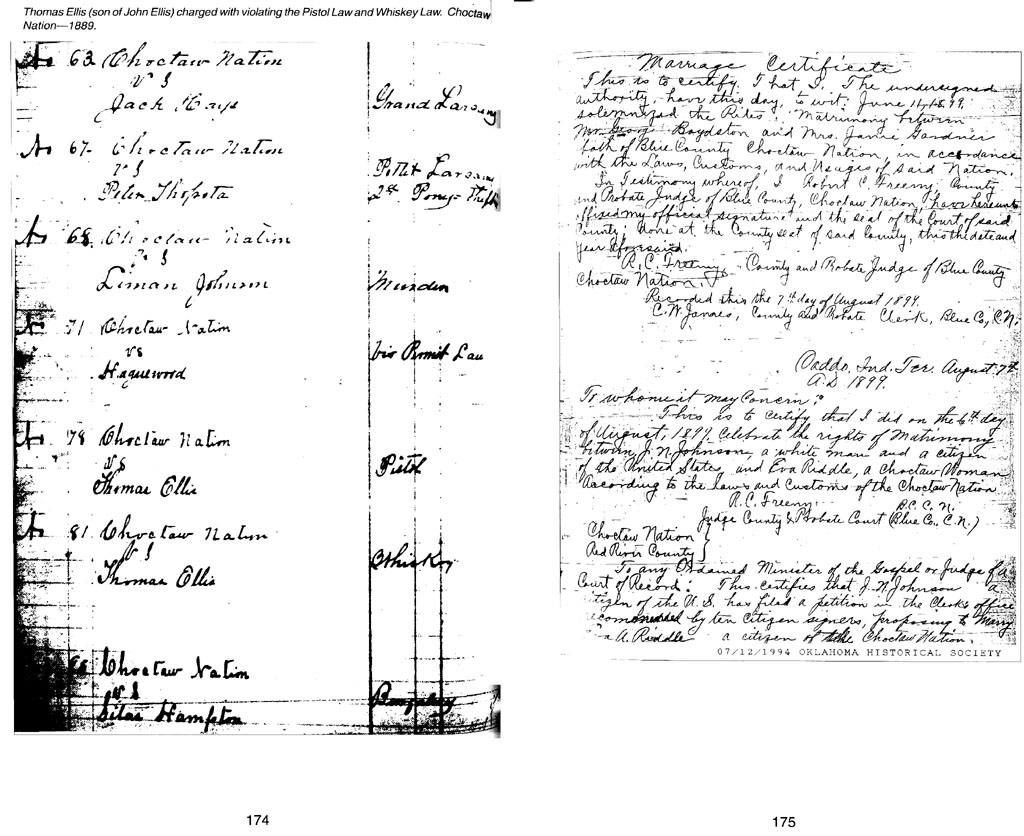 Thomas Ellis (son of John Ellis) charged with violating the Pistol Law and Whiskey Law. Choctaw
Nation—1889.
No 63 Choctaw Nation
vs
Jack Hays
Grand Larceny
No 67 Choctaw Nation
vs
Peter
Petit Larceny
Pony Theft
No 68 Choctaw Nation
vs
Liman Johnson
Murder
No 71 Choctaw Nation
vs
Haguewood
vio Permit Law
No 78 Choctaw Nation
vs
Thomas Ellis
Pistol
No 81 Choctaw Nation
vs
Thomas Ellis
Whiskey
Choctaw Nation
vs
Silas Hampton
174
Marriage Certificate
This is to certify That I, The undersigned
authority, have this day, to wit: June 1899
solemnized the Rites Matrimony between
Mr. Boydston and Mrs. Janie Gardner
both of Blue County Choctaw Nation, in accordance
with the Laws, Customs, and Usuges of said Nation.
In Testimony whereof, I Robert C. Freeny, County
and Probate Judge of Blue County, Choctaw Nation, have hereunto
affixed my official signature and the seal of the Court of said
County; done at the County seat of said County, this the date and
year aforesaid.
R.C. Freeny, County and Probate Judge of Blue County
Choctaw Nation.
Recorded this the 7th day of August 1899.
C.W. James, County and Probate Clerk, Blue Co, C.N.
Caddo, Ind. Ter. August 7th
A.D 1899.
To whome it may Concern:
This is to certify that I did on the 6th day
of August, 1899 Celebrate the rights of Matrimony
between J.N. Johnson, a white man and a citizen
of the United States, and Eva Riddle, a Choctaw Woman
According to the laws and Customs of the Choctaw Nation
R.C. Freeny B.C. C.N.
Judge County & Probate Court (Blue Co., C.N.)
Choctaw Nation }
Red River County }
To any Ordained Minister of the Gospel or Judge of a
Court of Record: This certifies that J.N. Johnson a
citizen of the U.S. has filed a petition in the Clerks office
by ten Citizen signers, proposing to Marry
A. Riddle a citizen of the Choctaw Nation.
07/12/1994 OKLAHOMA HISTORICAL SOCIETY
175